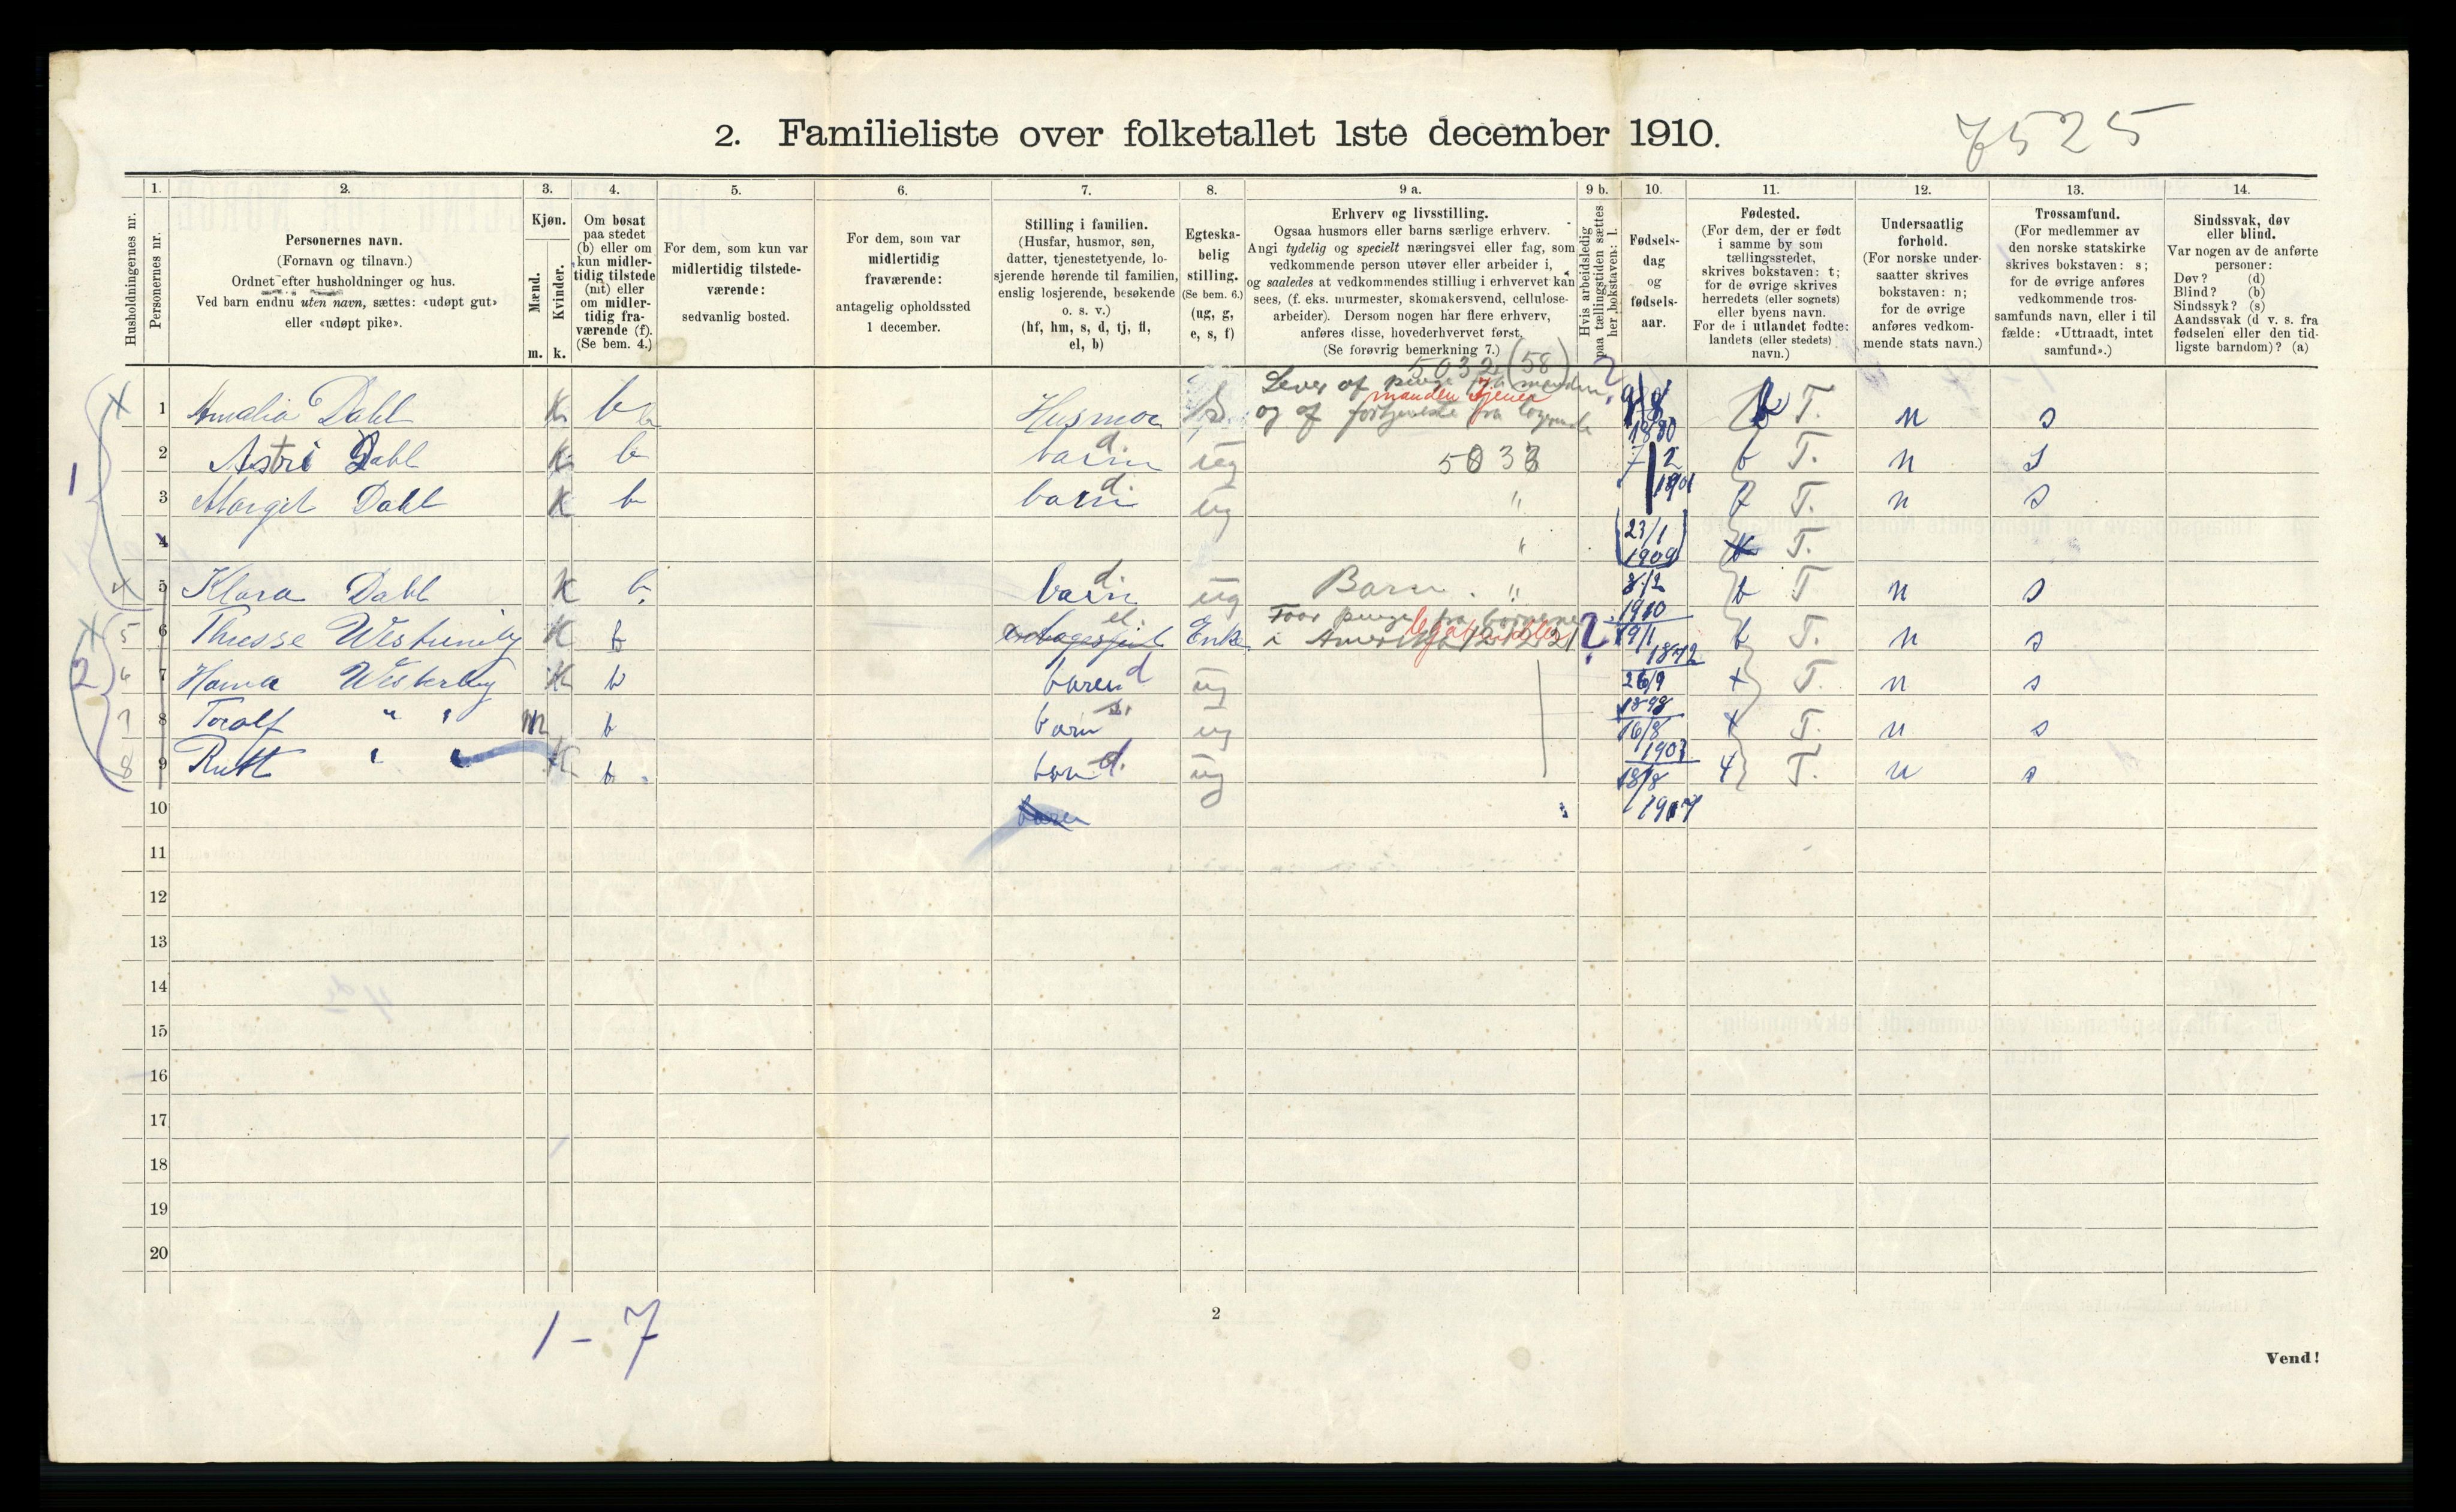 2. Familieliste over folketallet 1ste december 1910.
7525
Husholdningernes nr.
1.
Personernes nr.
2.
Personernes navn.
(Fornavn og tilnavn.)
Ordnet efter husholdninger og hus.
Ved barn endnu uten navn, sættes: «udøpt gut»
eller «udøpt pike».
3.
Kjøn.
Mænd.
Kvinder.
m. k.
4.
Om bosat
paa stedet
(b) eller om
kun midler-
tidig tilstede
(mt) eller
om midler-
tidig fra-
værende (f).
(Se bem. 4.)
5.
For dem, som kun var
midlertidig tilstede-
værende:
sedvanlig bosted.
6.
For dem, som var
midlertidig
fraværende:
antagelig opholdssted
1 december.
7.
Stilling i familien.
(Husfar, husmor, søn,
datter, tjenestetyende, lo-
sjerende hørende til familien,
enslig losjerende, besøkende
o. s. v.)
(hf, hm, s, d, tj, fl,
el, b)
8.
Egteska-
belig
stilling.
(Se bem. 6.)
(ug, g,
e, s, f)
9 a.
Erhverv og livsstilling.
Ogsaa husmors eller barns særlige erhverv.
Angi tydelig og specielt næringsvei eller fag, som
vedkommende person utøver eller arbeider i,
og saaledes at vedkommendes stilling i erhvervet kan
sees, (f. eks. murmester, skomakersvend, cellulose-
arbeider). Dersom nogen har flere erhverv,
anføres disse, hovederhvervet først.
(Se forøvrig bemerkning 7.)
9 b.
Hvis arbeidsledig
paa tællingstiden sættes
her bokstaven: l.
10.
Fødsels-
dag
og
fødsels-
aar.
11.
Fødested.
(For dem, der er født
i samme by som
tællingsstedet,
skrives bokstaven: t;
for de øvrige skrives
herredets (eller sognets)
eller byens navn.
For de i utlandet fødte:
landets (eller stedets)
navn.)
12.
Undersaatlig
forhold.
(For norske under-
saatter skrives
bokstaven: n;
for de øvrige
anføres vedkom-
mende stats navn.)
13.
Trossamfund.
(For medlemmer av
den norske statskirke
skrives bokstaven: s;
for de øvrige anføres
vedkommende tros-
samfunds navn, eller i til
fælde: «Uttraadt, intet
samfund».)
14.
Sindssvak, døv
eller blind.
Var nogen av de anførte
personer:
Døv? (d)
Blind? (b)
Sindssyk? (s)
Aandssvak (d v. s. fra
fødselen eller den tid-
ligste barndom)? (a)
5032 (58)
Lever af penge fra manden
manden Tjener
1 x 1 Amalia Dahl K b Husmor S. og af fortjeneste fra logerende 9/8 1880 T. n s
2 Astri Dahl K b barn d. ug 5033 7/2 1901 T. n s
3 Margit Dahl K b barn d. ug " T. n s
4 " (23/1 1909) T.
x 5 Klara Dahl K b. barn d. ug Barn. " 8/2 1910 t T n s
Faar penge fra børnene
2 x 5 6 K b el. Enke i Amerika 12121 ? 19/1 1872 t T. n s
6 7 K b baren d ug 26/9 1898 T. n s
7 8 Toralf " " m b barn s. ug 16/8 1903 T. n s
8 9 Rutt " " K b d. ug 18/8 1907 T. n s
10 baren
11
12
13
14
15
16
17
18
19
20
1 – 7
2
Vend!